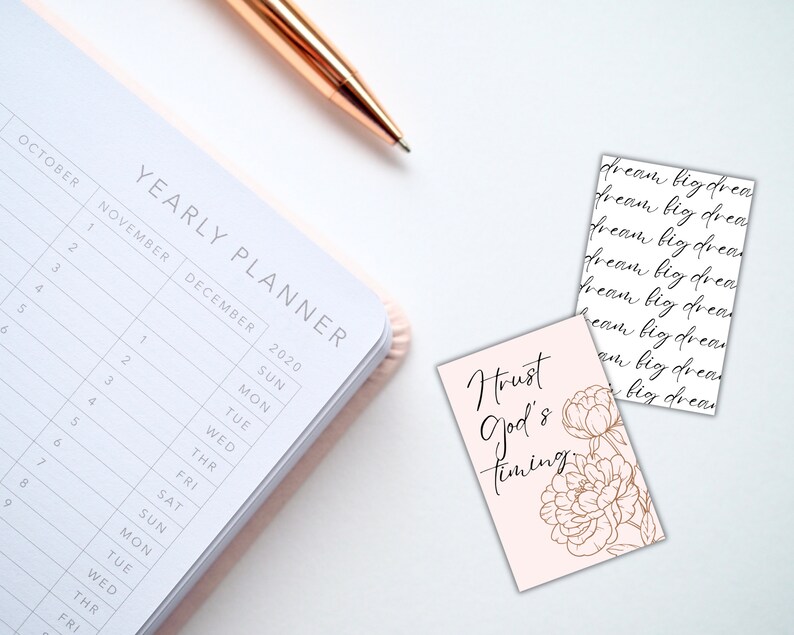 YEARLY PLANNER
OCTOBER NOVEMBER DECEMBER 2020
1 1 SUN
2 2 MON
3 3 TUE
4 4 WED
5 5 THR
6 6 FRI
7 SAT
8 SUN
9 MON
TUE
WED
THR
FRI
dream big drea
dream big drea
dream big drea
dream big drea
dream big drea
dream big drea
dream big drea
big drea
I trust
God's
timing.